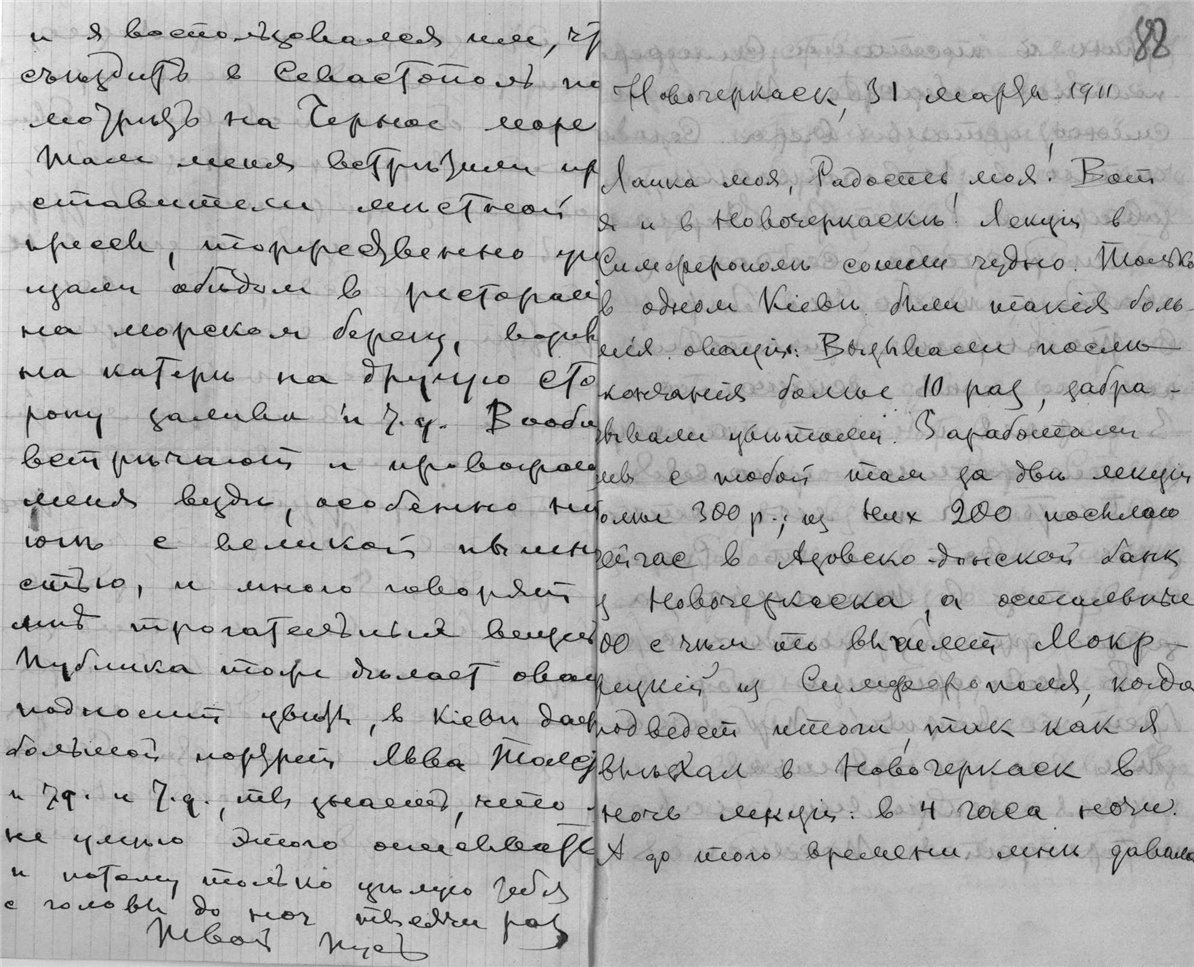 и я воспользовался им, чт
съѣздить в Севастополь по
на Черное море
Там меня встрѣтили пр
ставители мѣстной
прессы, торжественно уг
щали обѣдом в ресторан
на морском берегу, водив
на катерѣ на другую сто
рону залива и т. д. Вооб
встрѣчают и провожают
меня вездѣ, особенно на
югѣ с великой пылк
стью, и много говорят
мнѣ трогательных вещей
Публика тоже дѣлает овац
подносит цвѣты, в Кіевѣ даж
большой портрет Льва Толст
и т. д. и т. д., ты знаешь, что
не умѣю этого описывать
и потому только цѣлую тебя
с головы до ног тысячи раз
Твой
88
Новочеркасск, 31 марта 1911
Лапка моя, Радость моя! Вот
я и в Новочеркасскѣ! Лекціи в
Симферополѣ сошли чудно. Только
в одном Кіевѣ были такія боль
шія оваціи. Вызывали послѣ
окончанія болѣе 10 раз, забра-
сывали цвѣтами. Заработали
мы с тобой там за двѣ лекціи
болѣе 300 р.; из них 200 посылаю
сейчас в Азовско-донской банк
из Новочеркасска, а остальные
100 с чѣм то вышлет Мокр-
жецкій из Симферополя, когда
подведет итоги, так как я
выѣхал в Новочеркасск в
ночь лекціи в 4 часа ночи.
А до того времени мнѣ давали